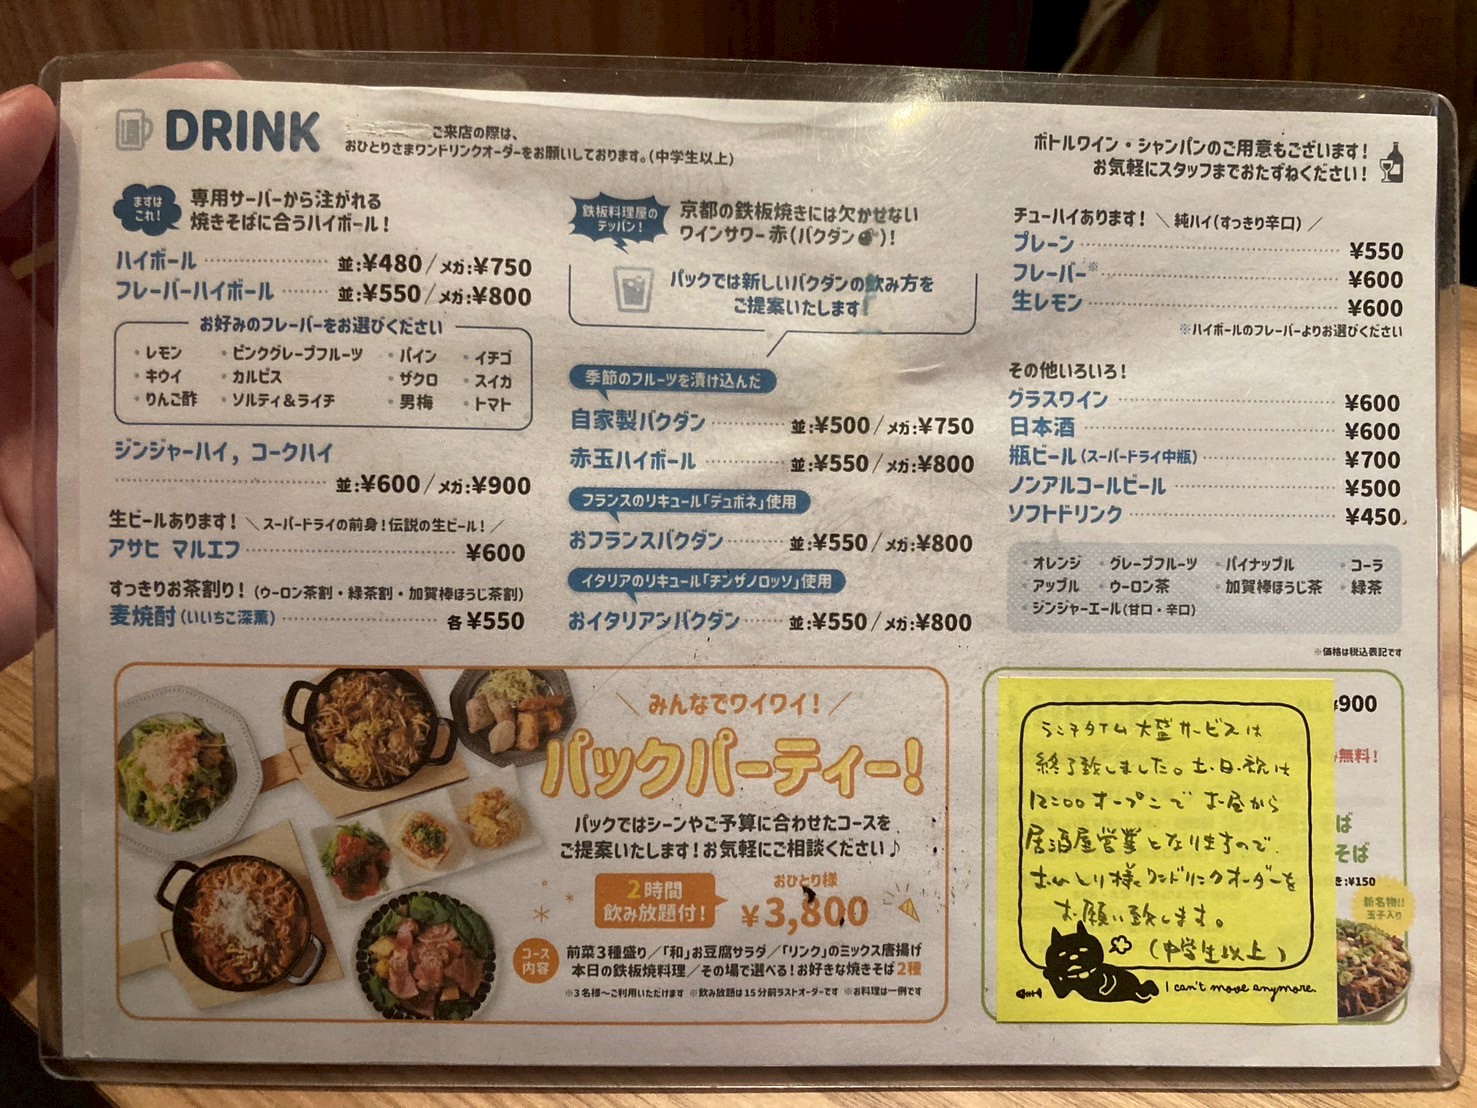 DRINK
ご来店の際は、
おひとりさまワンドリンクオーダーをお願いしております。(中学生以上)
ボトルワイン・シャンパンのご用意もございます!
お気軽にスタッフまでおたずねください!
まずは
これ!
専用サーバーから注がれる
焼きそばに合うハイボール!
ハイボール 並:¥480/メガ:¥750
フレーバーハイボール 並:¥550/メガ:¥800
お好みのフレーバーをお選びください
・レモン ・ピンクグレープフルーツ ・パイン ・イチゴ
・キウイ ・カルピス ・ザクロ ・スイカ
・りんご酢 ・ソルティ&ライチ ・男梅 ・トマト
ジンジャーハイ, コークハイ
並:¥600/メガ:¥900
生ビールあります! \スーパードライの前身!伝説の生ビール!/
アサヒ マルエフ ¥600
すっきりお茶割り! (ウーロン茶割・緑茶割・加賀棒ほうじ茶割)
麦焼酎(いいちこ深薫) 各¥550
鉄板料理屋の
テッパン!
京都の鉄板焼きには欠かせない
ワインサワー赤(バクダン)!
パックでは新しいバクダンの飲み方を
ご提案いたします!
季節のフルーツを漬け込んだ
自家製バクダン 並:¥500/メガ:¥750
赤玉ハイボール 並:¥550/メガ:¥800
フランスのリキュール「デュボネ」使用
おフランスバクダン 並:¥550/メガ:¥800
イタリアのリキュール「チンザノロッソ」使用
おイタリアンバクダン 並:¥550/メガ:¥800
チューハイあります! \ 純ハイ(すっきり辛口) /
プレーン ¥550
フレーバー※ ¥600
生レモン ¥600
※ハイボールのフレーバーよりお選びください
その他いろいろ!
グラスワイン ¥600
日本酒 ¥600
瓶ビール(スーパードライ中瓶) ¥700
ノンアルコールビール ¥500
ソフトドリンク ¥450
・オレンジ ・グレープフルーツ ・パイナップル ・コーラ
・アップル ・ウーロン茶 ・加賀棒ほうじ茶 ・緑茶
・ジンジャーエール(甘口・辛口)
※価格は税込表記です
\ みんなでワイワイ! /
パックパーティー!
パックではシーンやご予算に合わせたコースを
ご提案いたします!お気軽にご相談ください♪
2時間
飲み放題付!
おひとり様
¥3,800
コース
内容
前菜3種盛り/「和」お豆腐サラダ/「リンク」のミックス唐揚げ
本日の鉄板焼料理/その場で選べる!お好きな焼きそば2種
※3名様〜ご利用いただけます ※飲み放題は15分前ラストオーダーです ※お料理は一例です
¥900
無料!
ば
そば
き:¥150
新名物!!
玉子入り
ランチタイム大盛サービスは
終了致しました。土・日・祝は
12:00オープンでお昼から
居酒屋営業となりますので、
おひとり様ワンドリンクオーダーを
お願い致します。
(中学生以上)
I can't move anymore.